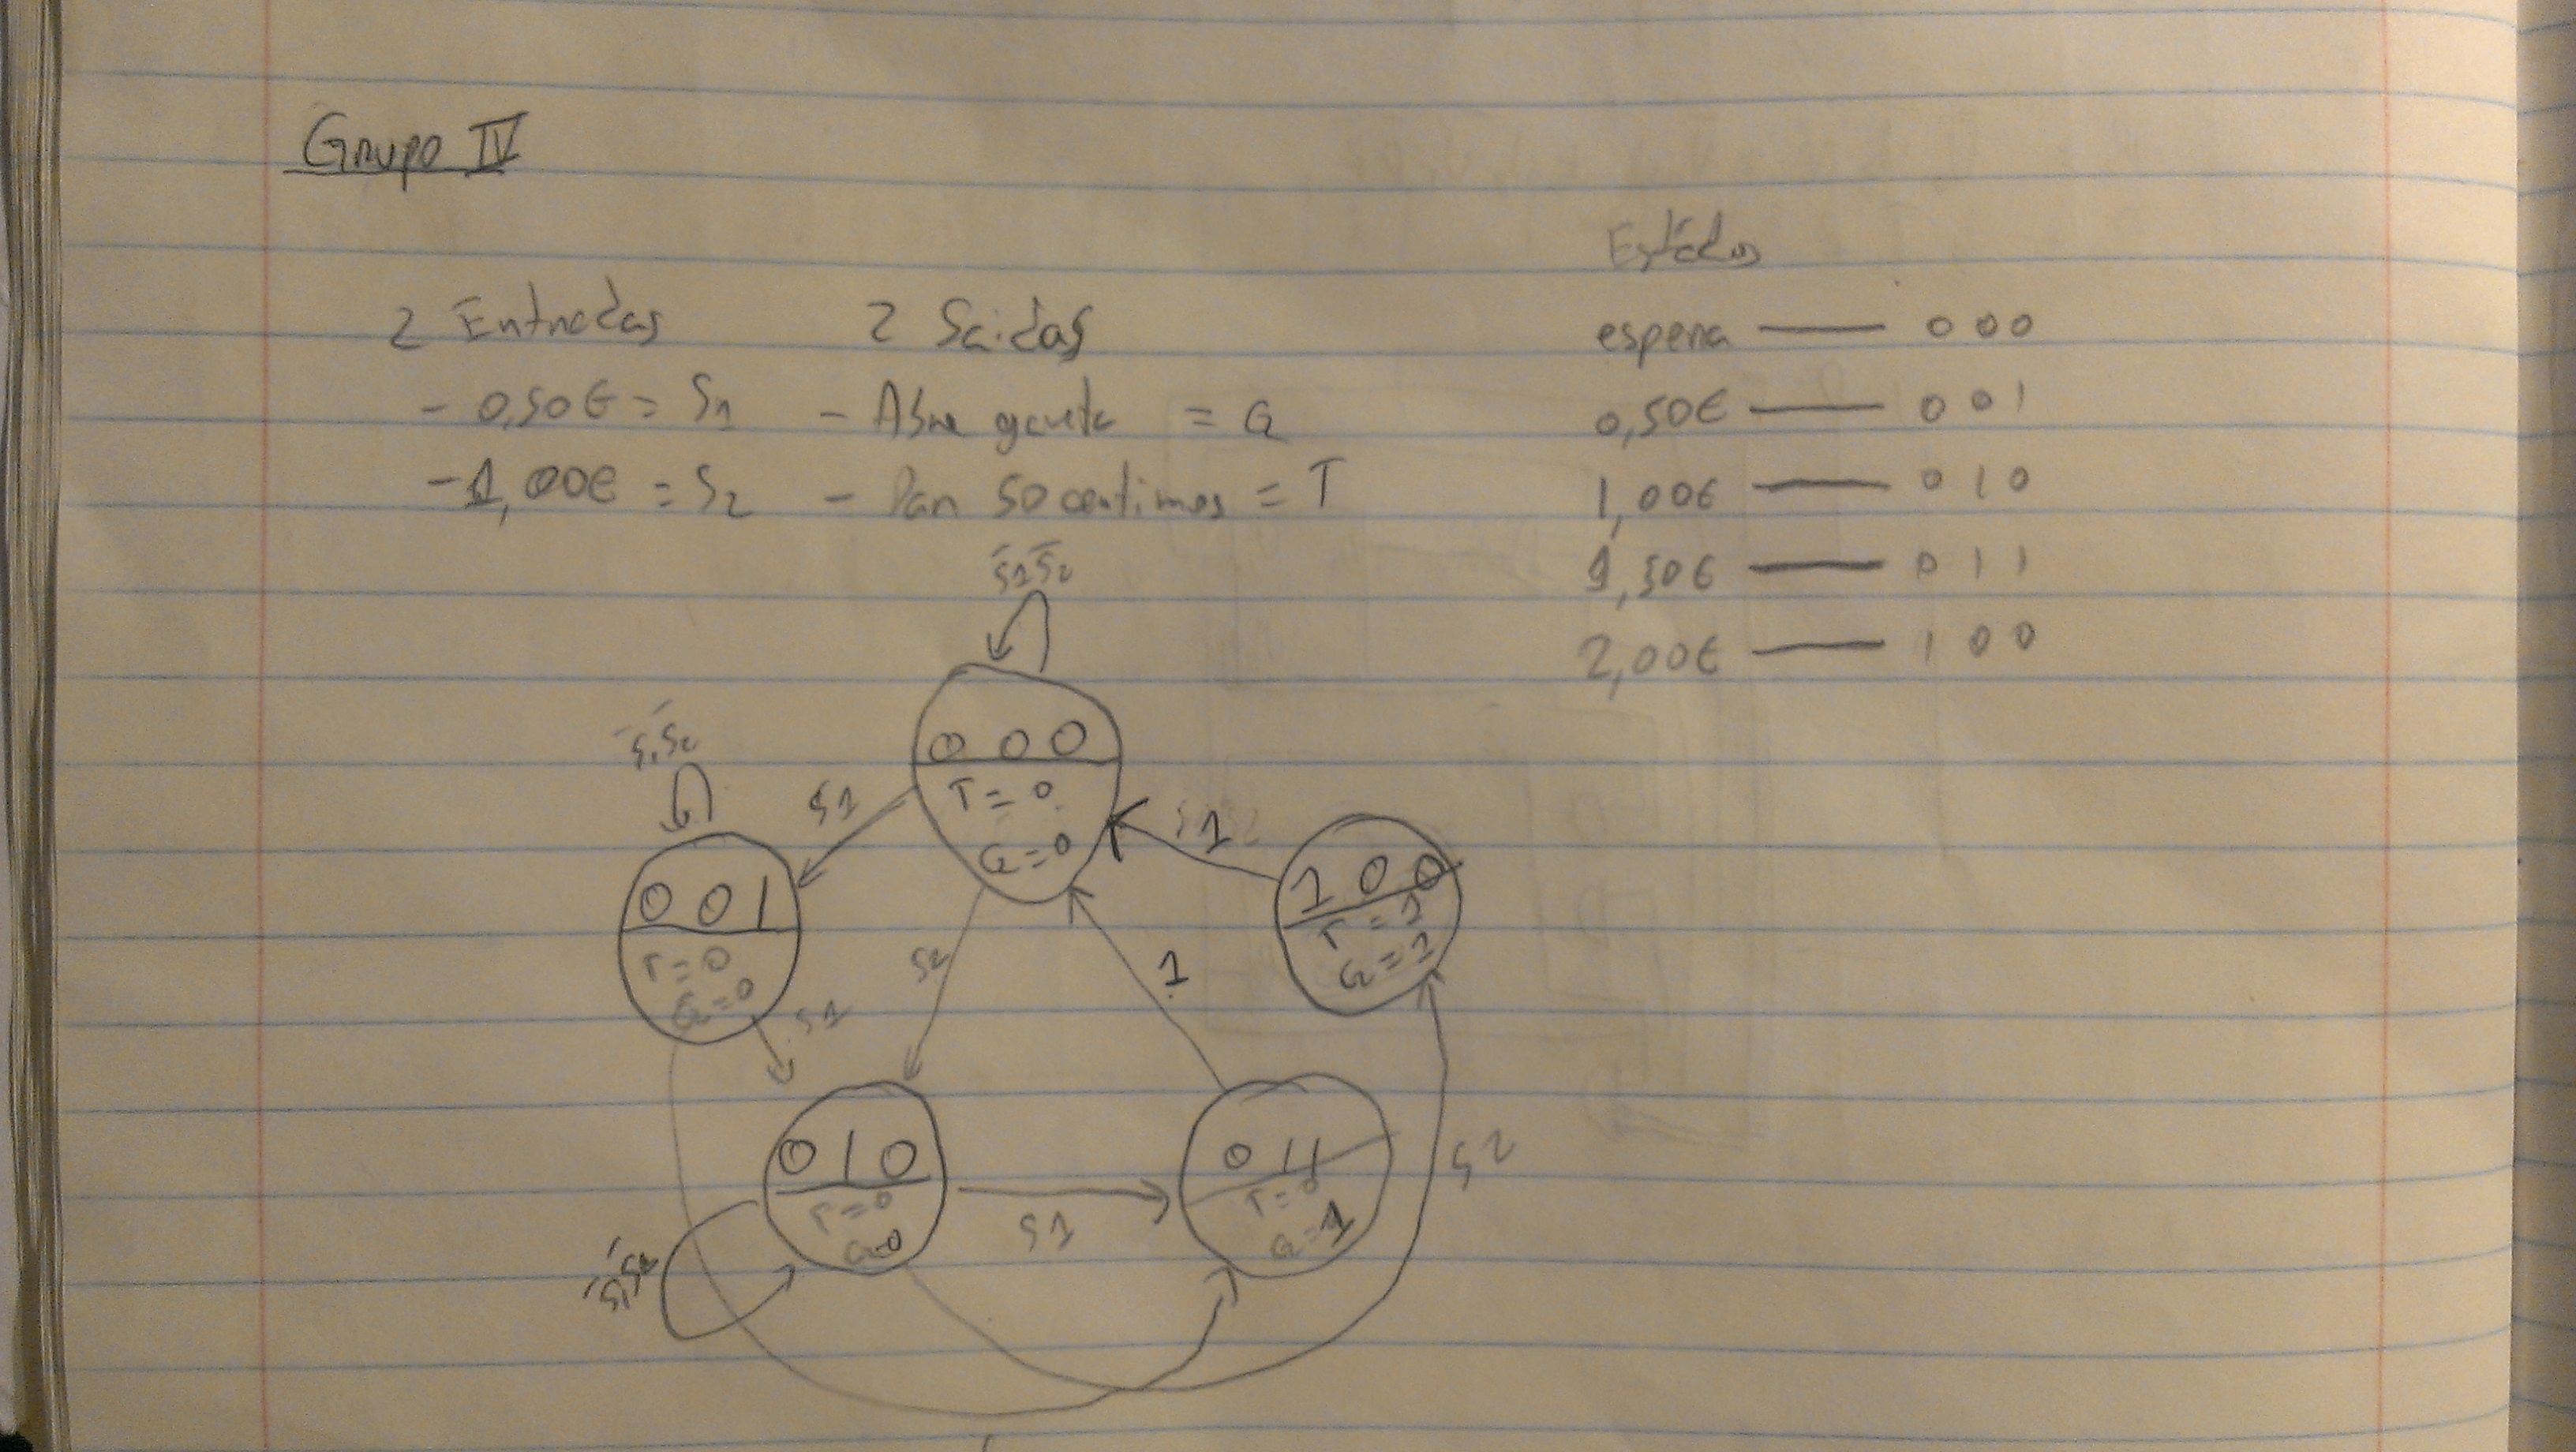 Grupo IV
2 Entradas
- 0,50€ = S1
- 1,00€ = S2
2 Saídas
- Abre gaveta = G
- Dar 50 centimos = T
Estados
espera — 000
0,50€ — 001
1,00€ — 010
1,50€ — 011
2,00€ — 100
S̅1S̅2
000
T=0
G=0
S̅1S̅2
S1
S1
001
T=0
G=0
100
T=1
G=1
S2
1
S1
010
T=0
G=0
S1
011
T=0
G=1
S2
S̅1S̅2